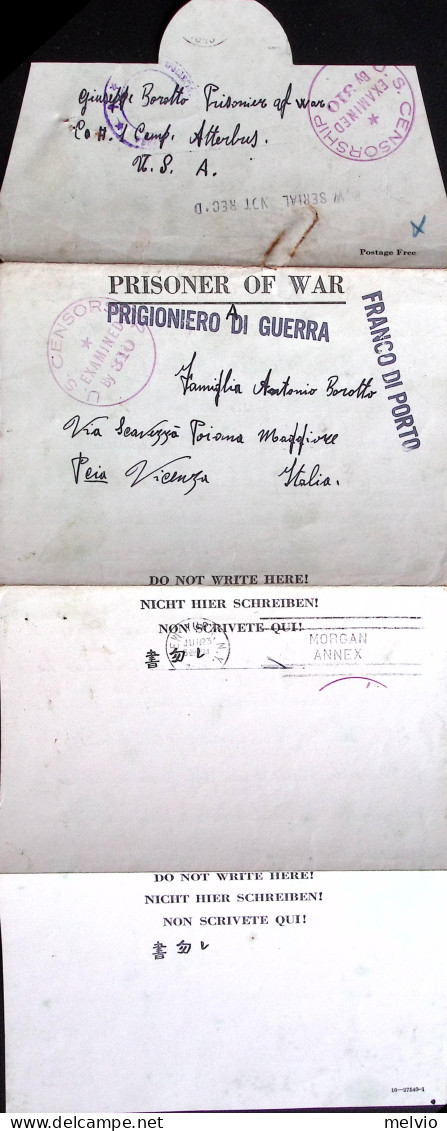 Giuseppe Borotto Prisonier of war.
Co H. 1 Camp. Atterbus.
U. S. A.
U S CENSORSHIP
EXAMINED
By 310
W SERIAL NOT REC'D
Postage Free
PRISONER OF WAR
A
PRIGIONIERO DI GUERRA
FRANCO DI PORTO
U S CENSORS
EXAMINED
By 310
Famiglia Antonio Borotto
Via Scavezzà Poiana Maggiore
Pcia Vicenza Italia.
DO NOT WRITE HERE!
NICHT HIER SCHREIBEN!
NON SCRIVETE QUI!
書勿レ
N.Y.
MORGAN
ANNEX
DO NOT WRITE HERE!
NICHT HIER SCHREIBEN!
NON SCRIVETE QUI!
書勿レ
16—27540-1
melvio
Delcampe.net